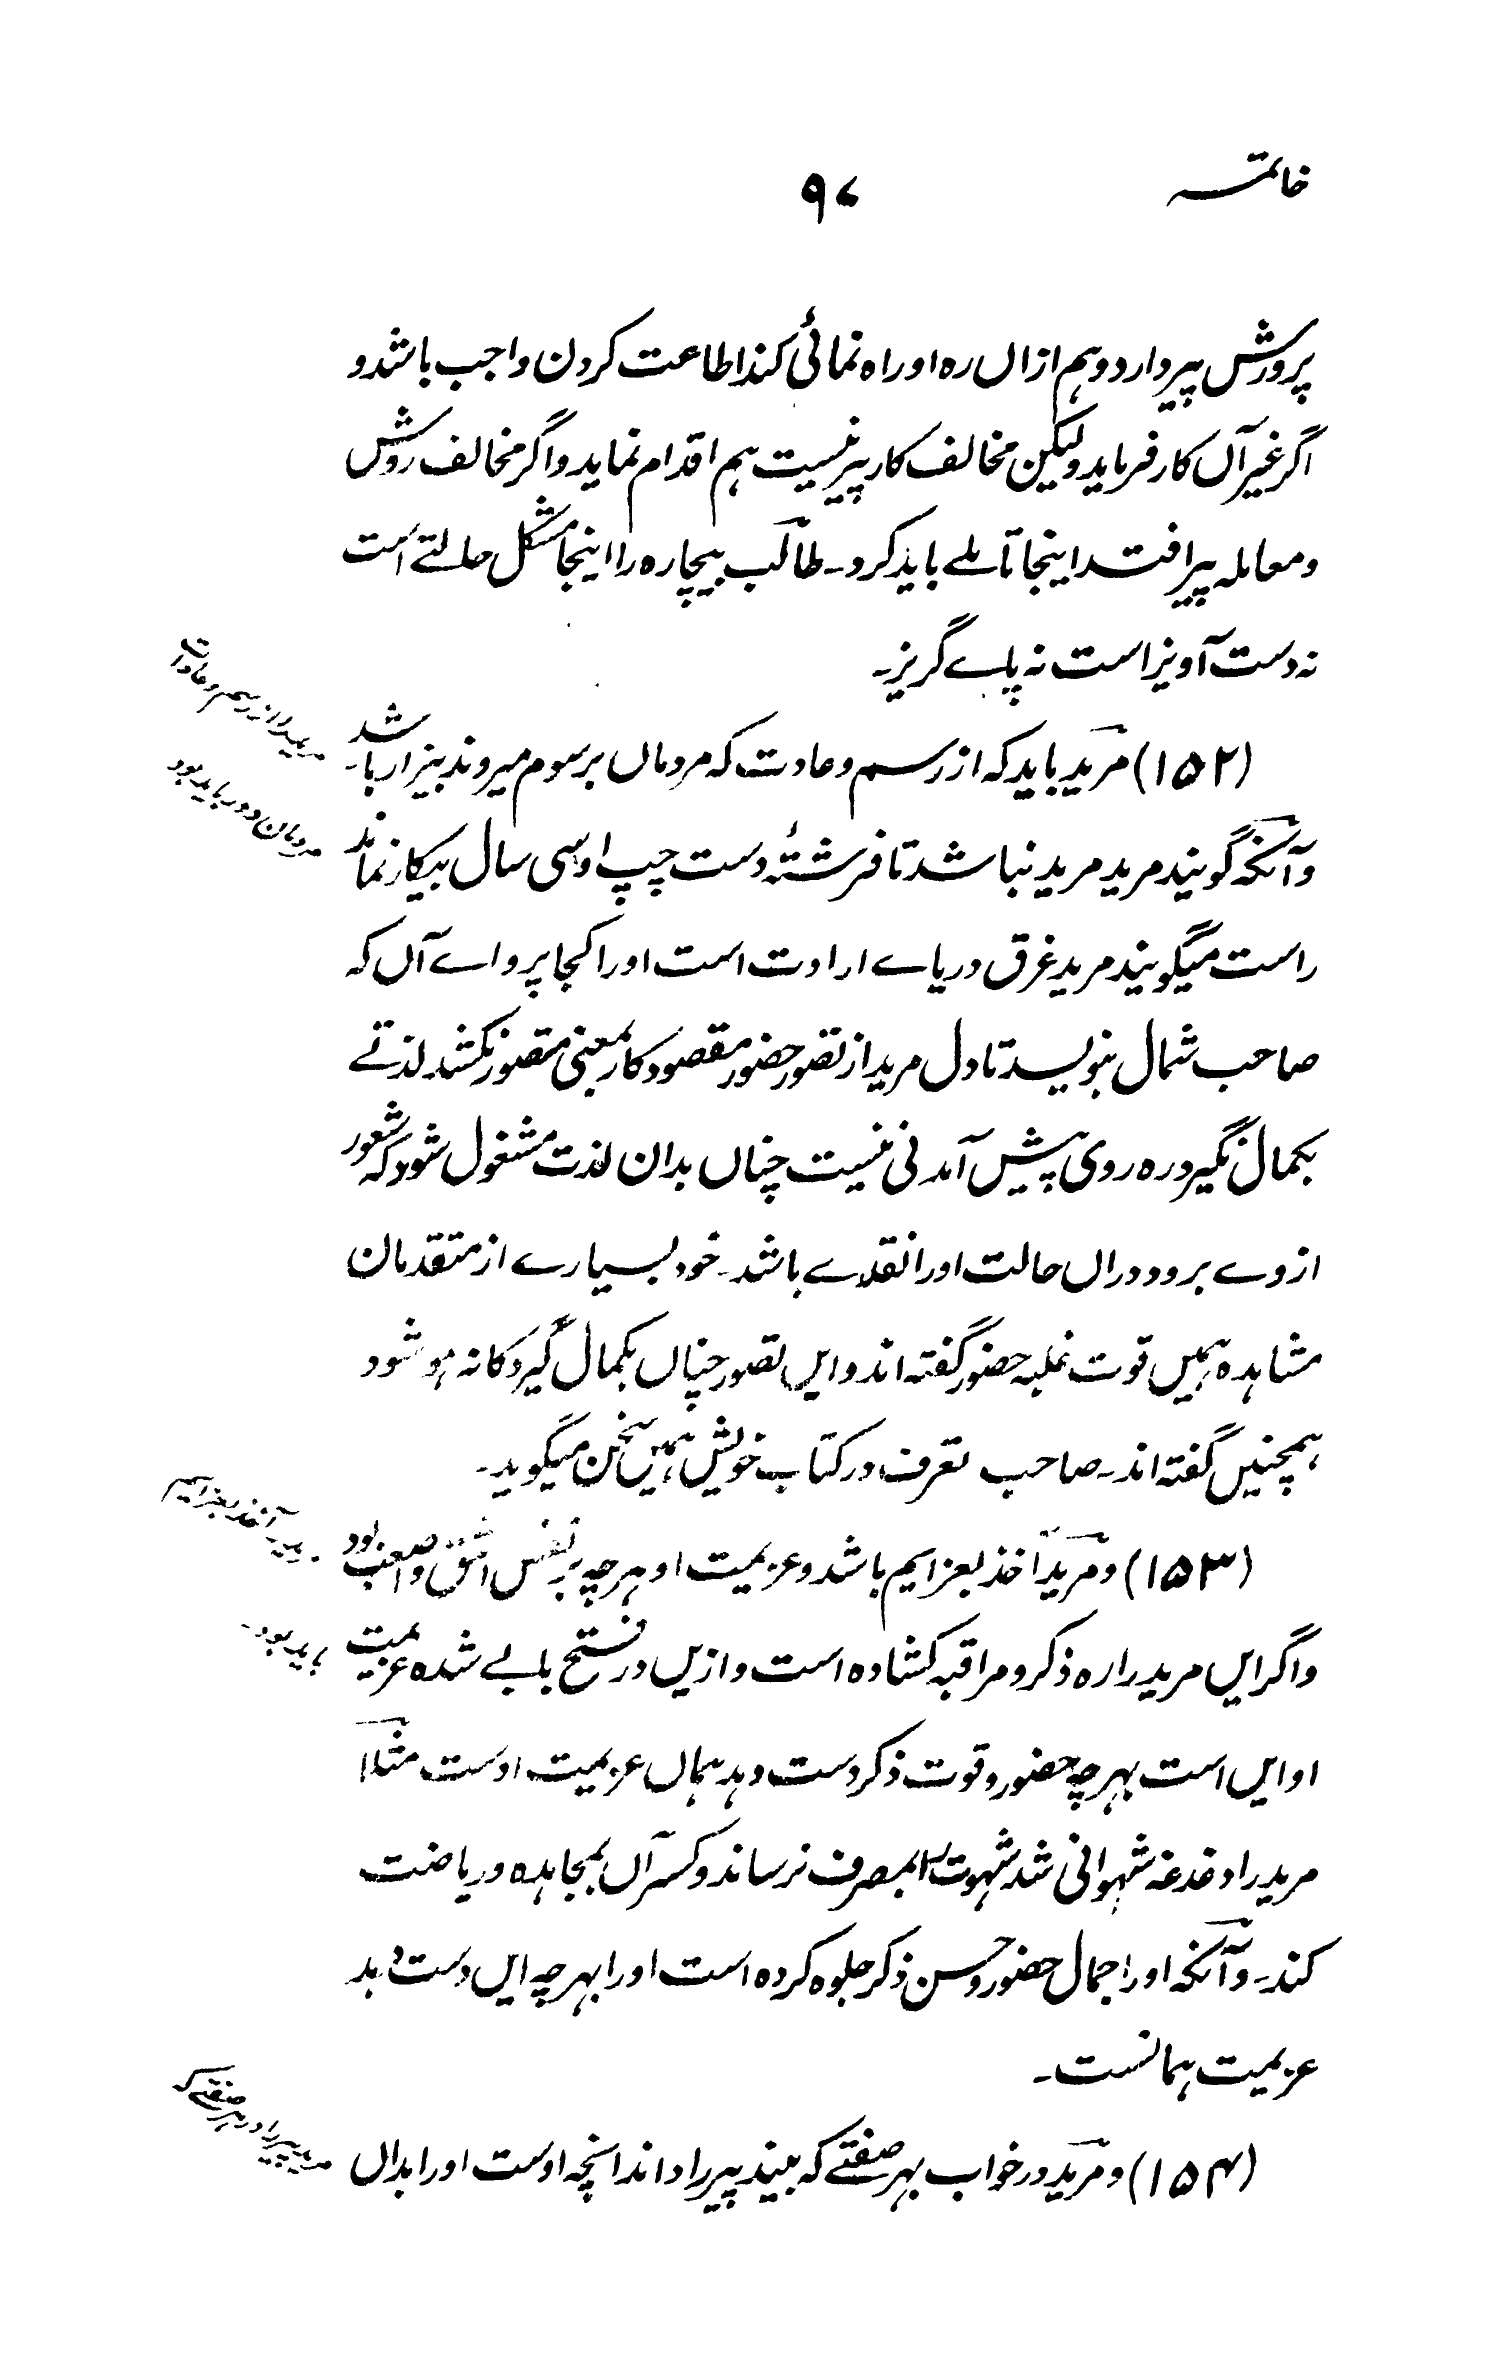 خاتمہ
۹۷
پرورش پیر دارد و ہم ازاں رہ او راہ نمائی کند اطاعت کردن واجب باشد و
اگر غیر آں کار فرماید ولیکن مخالف کار پیر نیست ہم اقدام نماید و اگر مخالف روش
و معاملہ پیر افتد اینجا تاملے باید کرد۔ طالب بیچارہ را اینجا مشکل حالتے است
نہ دست آویز است نہ پاے گریز۔
(۱۵۲) مرید باید کہ از رسم و عادت کہ مردماں برسوم میروند بیزار باشد۔
مرید را از رسم و عادات
مردمان دور باید بود
و آنکہ گویند مرید مرید نباشد تا فرشتۂ دست چپ او سی سال بیکار نماند
راست میگویند مرید غرق دریاے ارادت است او را کجا پرواے آں کہ
صاحب شمال بنویسد تا دل مرید از تصور حضور مقصود کار بمعنی متصور نکشد لذتے
بکمال نگیرد رہ روی پیش آمدنی نیست چناں بدان لذت مشغول شود کہ شعور
از وے برود دراں حالت او را نقدے باشد۔ خود بسیارے از متقدمان
مشاہدہ ہمیں قوت غلبہ حضور گفتہ اند و ایں تصور چناں بکمال گیرد کانہ ہو شود
ہمچنیں گفتہ اند۔ صاحب تعرف در کتاب خویش ہمیں سخن میگوید۔
(۱۵۳) و مرید آخذ بعزایم باشد و عزیمت او ہرچہ بر نفس اشق و اصعب بود
مرید آخذ بعزایم
باید بود۔
و اگر ایں مرید را رہ ذکر و مراقبہ کشادہ است و ازیں در فتح بابے شدہ عزیمت
او ایں است بہرچہ حضور و قوت ذکر دست دہد ہماں عزیمت اوست مثلاً
مرید را دغدغہ شہوانی شد شہوت را بمصرف نرساند و کسر آں بمجاہدہ و ریاضت
کند۔ و آنکہ او را جمال حضور و حسن ذکر جلوہ کردہ است او را بہرچہ ایں دست دہد
عزیمت ہمانست۔
(۱۵۴) و مرید در خواب بہر صفتے کہ بیند پیر را داند انچہ اوست او را بداں
مرید پیر را در ہر صفتے کہ